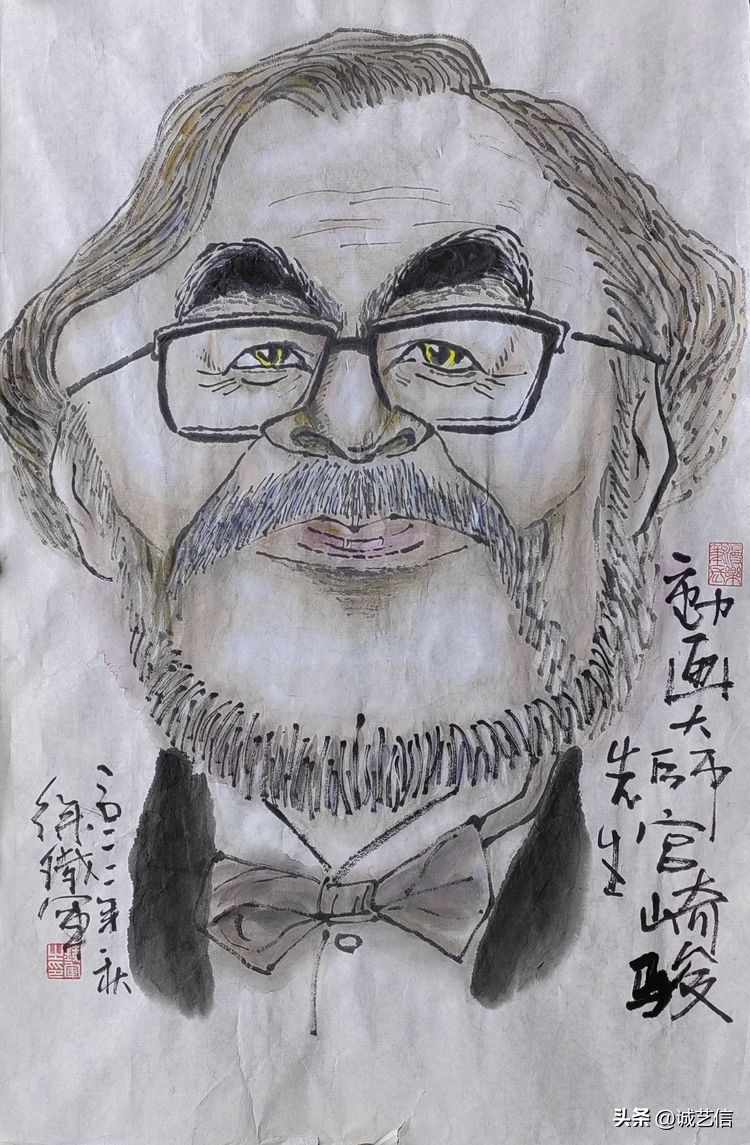 動画大師宮崎駿
先生
二〇二二年秋
徐鐵軍
头条 @诚艺信